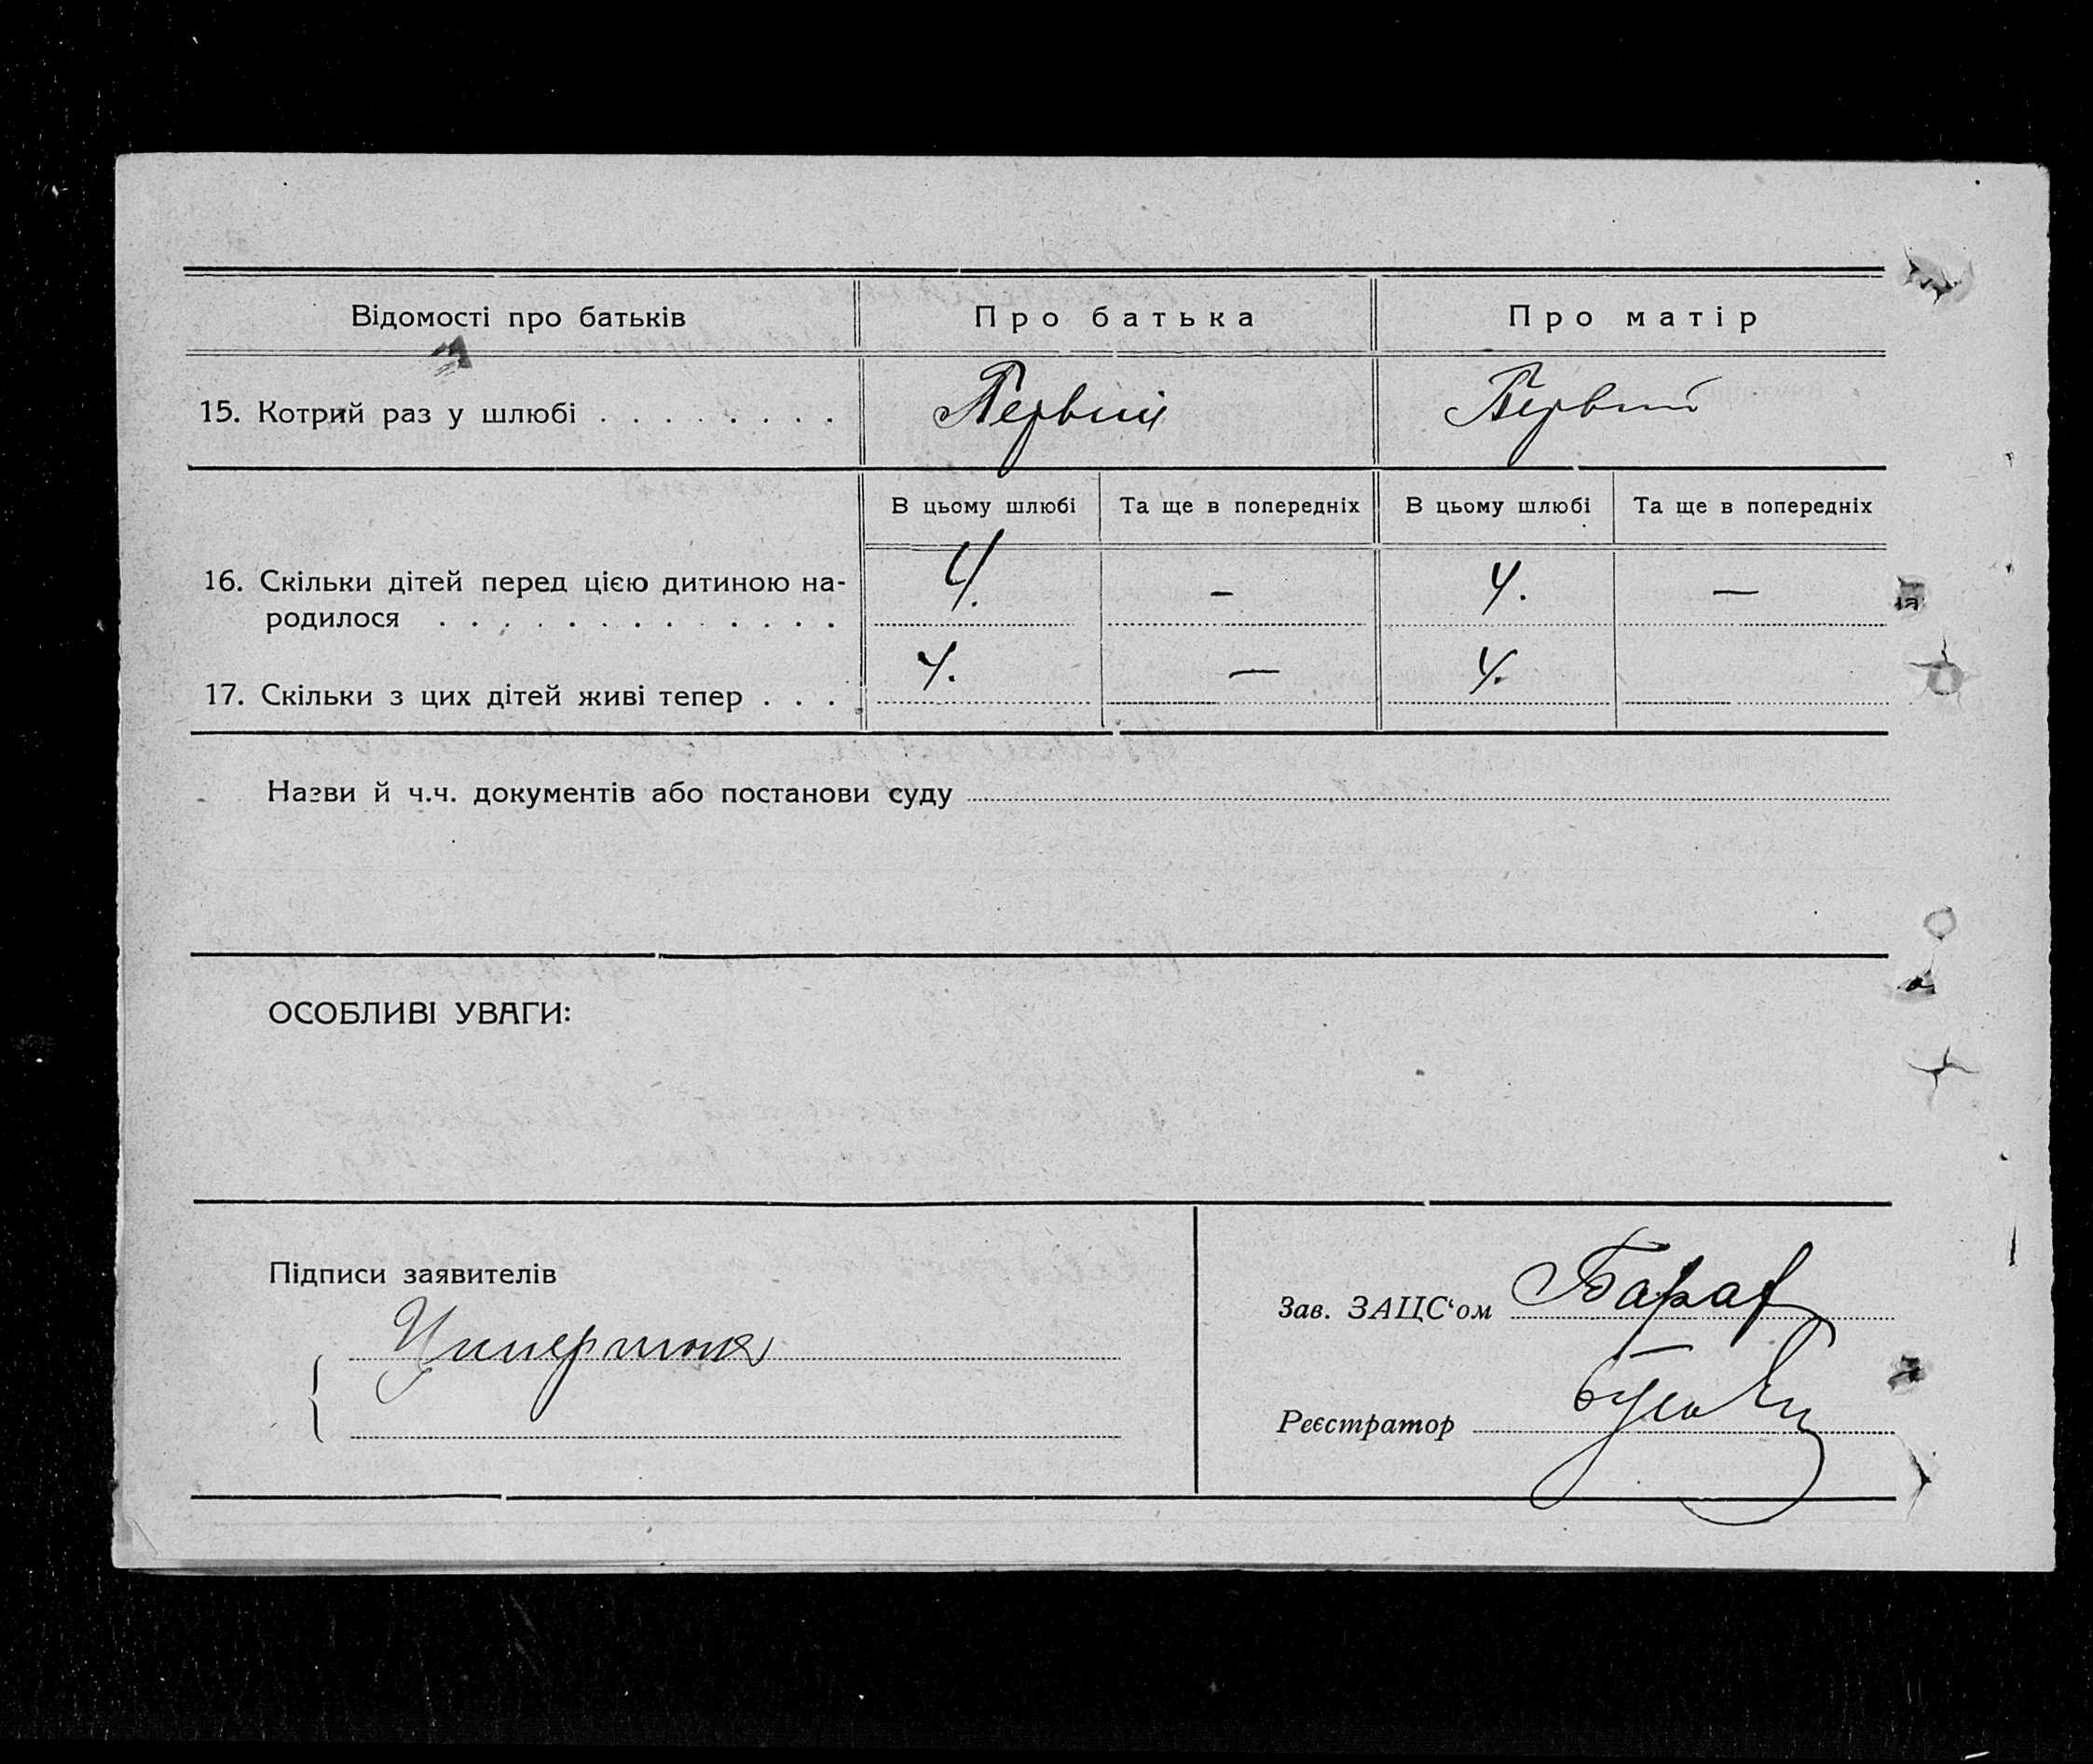 Відомості про батьків Про батька Про матір
15. Котрий раз у шлюбі . . . . . . . . Первий Первий
В цьому шлюбі Та ще в попередніх В цьому шлюбі Та ще в попередніх
16. Скільки дітей перед цією дитиною на-
родилося . . . . . . . . . . . . . 4. – 4. —
17. Скільки з цих дітей живі тепер . . . 4. — 4.
Назви й ч.ч. документів або постанови суду
ОСОБЛИВІ УВАГИ:
Підписи заявителів
Зав. ЗАЦС‘ом
Реєстратор